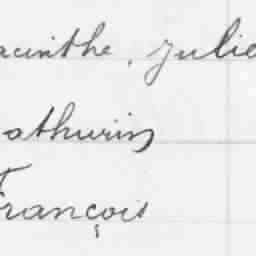 acinthe, Julie
athurin
François